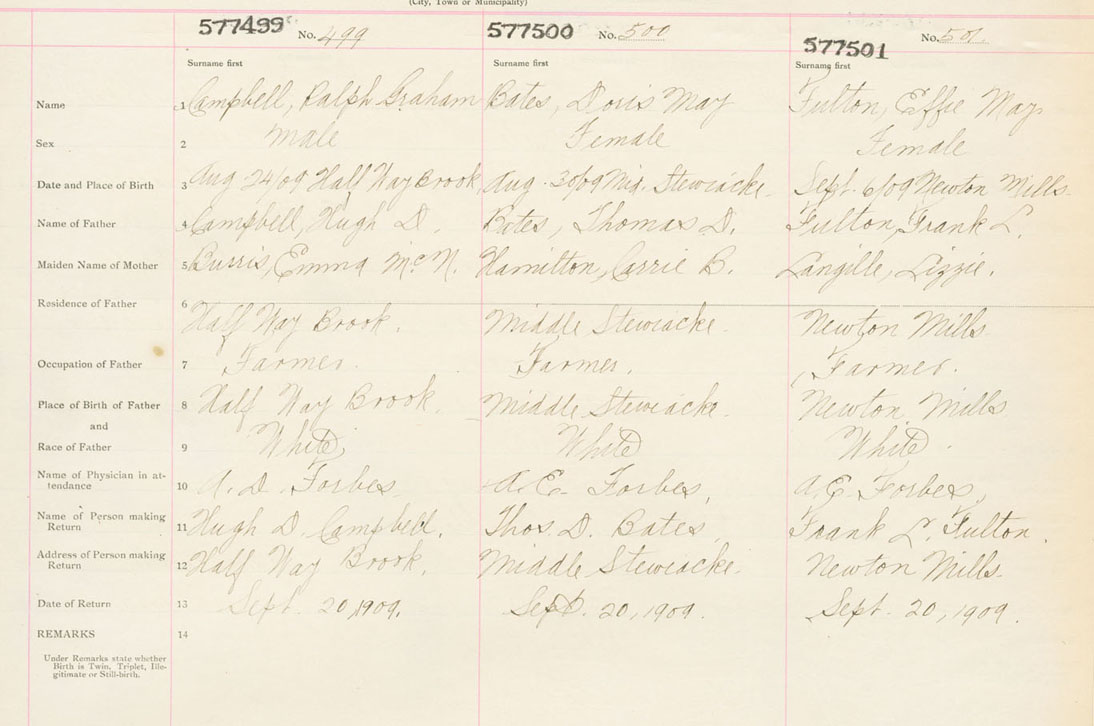 (City, Town or Municipality)
577499 No. 499 577500 No. 500 577501 No. 501
Surname first Surname first Surname first
Name 1 Campbell, Ralph Graham Bates, Doris May Fulton, Effie May
Sex 2 male Female Female
Date and Place of Birth 3 Aug 24/09 Half Way Brook Aug. 30/09 Mid. Stewiacke. Sept. 6/09 Newton Mills.
Name of Father 4 Campbell, Hugh D. Bates, Thomas D. Fulton, Frank L.
Maiden Name of Mother 5 Burris, Emma McN. Hamilton, Carrie B. Langille, Lizzie.
Residence of Father 6 Half Way Brook. Middle Stewiacke. Newton Mills.
Occupation of Father 7 Farmer. Farmer. Farmer.
Place of Birth of Father 8 Half Way Brook. Middle Stewiacke. Newton Mills
and
Race of Father 9 White White White.
Name of Physician in at-
tendance 10 A. D. Forbes A. E. Forbes, A. E. Forbes,
Name of Person making
Return 11 Hugh D. Campbell. Thos. D. Bates Frank L. Fulton.
Address of Person making
Return 12 Half Way Brook. Middle Stewiacke. Newton Mills.
Date of Return 13 Sept. 20, 1909. Sept. 20, 1909. Sept. 20, 1909.
REMARKS 14
Under Remarks state whether
Birth is Twin, Triplet, Ille-
gitimate or Still-birth.